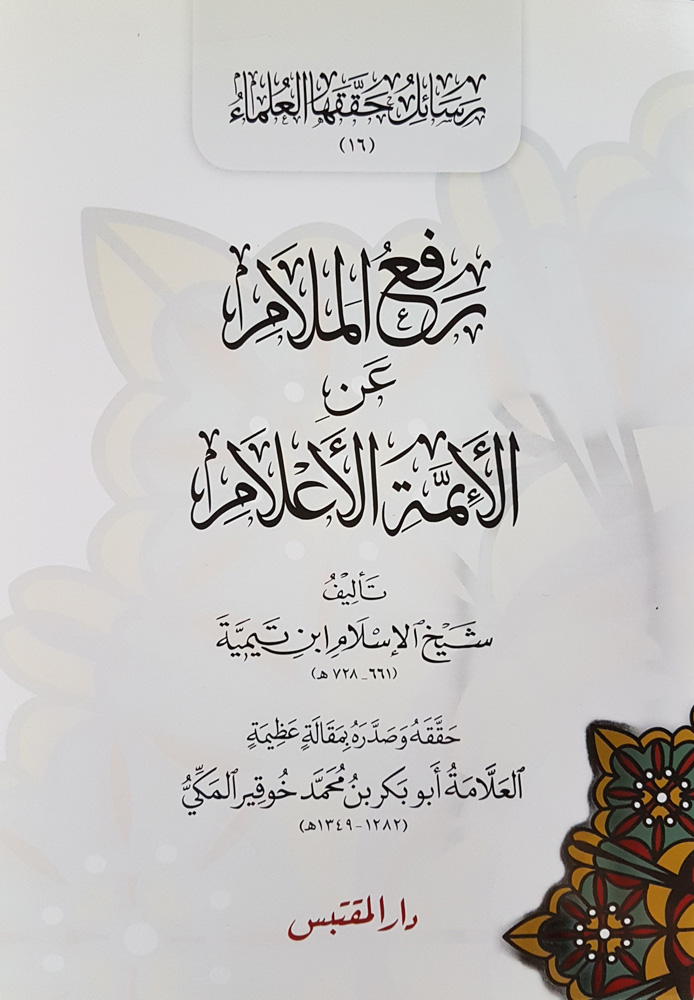 رَسَائِلُ حَقَّقَهَا العُلَمَاءُ
(١٦)
رَفْعُ المَلَامِ
عَنِ
الأَئِمَّةِ الأَعْلَامِ
تَأْلِيفُ
شَيْخِ الإِسْلَامِ ابنِ تَيمِيَّةَ
(٦٦١ - ٧٢٨ هـ)
حَقَّقَهُ وَصَدَّرَهُ بِمَقَالَةٍ عَظِيمَةٍ
العَلَّامَةُ أَبو بَكر بنُ مُحَمَّد خُوقِير المَكِّيُّ
(١٢٨٢ - ١٣٤٩هـ)
دار المقتبس